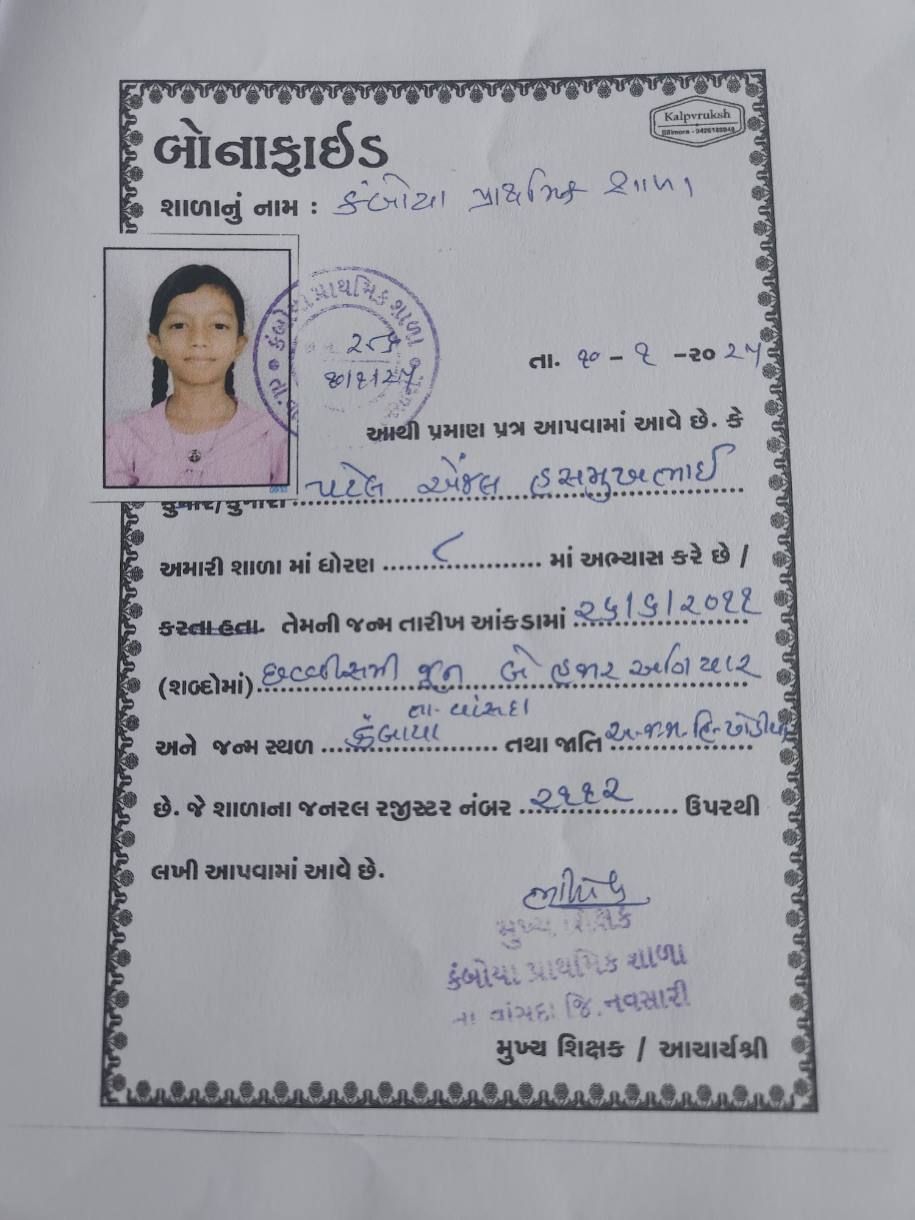 Kalpvruksh
Bilimora - 9426188848
બોનાફાઈડ
શાળાનું નામ : કંબોયા પ્રાથમિક શાળા
કંબોયા પ્રાથમિક શાળા
તા. ૧૦ - ૧ - ૨૦ ૨૫
આથી પ્રમાણ પત્ર આપવામાં આવે છે. કે
કુમાર/કુમારી પટેલ એંજલ હસમુખભાઈ
અમારી શાળા માં ધોરણ ૮ માં અભ્યાસ કરે છે /
કરતા હતા. તેમની જન્મ તારીખ આંકડામાં ૨૬/૬/૨૦૧૧
(શબ્દોમાં) છવ્વીસમી જૂન બે હજાર અગિયાર
તા. વાંસદા
અને જન્મ સ્થળ કંબોયા તથા જાતિ અ.જ.જા.હિ.ધોડીયા
છે. જે શાળાના જનરલ રજીસ્ટર નંબર ૨૧૧૨ ઉપરથી
લખી આપવામાં આવે છે.
મુખ્ય શિક્ષક
કંબોયા પ્રાથમિક શાળા
તા વાંસદા જિ. નવસારી
મુખ્ય શિક્ષક / આચાર્યશ્રી